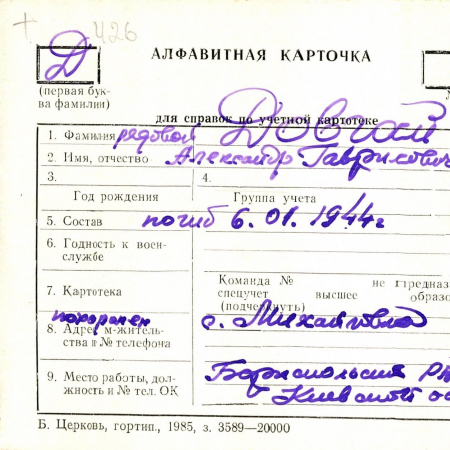 + Ч26
Д
АЛФАВИТНАЯ КАРТОЧКА
(первая бук-
ва фамилии)
для справок по учетной картотеке
1. Фамилия рядовой Довгай
2. Имя, отчество Александр Гаврилович
3.
4.
Год рождения
Группа учета
5. Состав погиб 6.01.1944г
6. Годность к воен-
службе
7. Картотека
Команда № не предназ
спецучет высшее образо
(подчеркнуть)
похоронен с. Михайловка
8. Адрес м-житель-
ства и № телефона
9. Место работы, дол-
жность и № тел. ОК
Бориспольский
Киевской об
Б. Церковь, гортип., 1985, з. 3589—20000